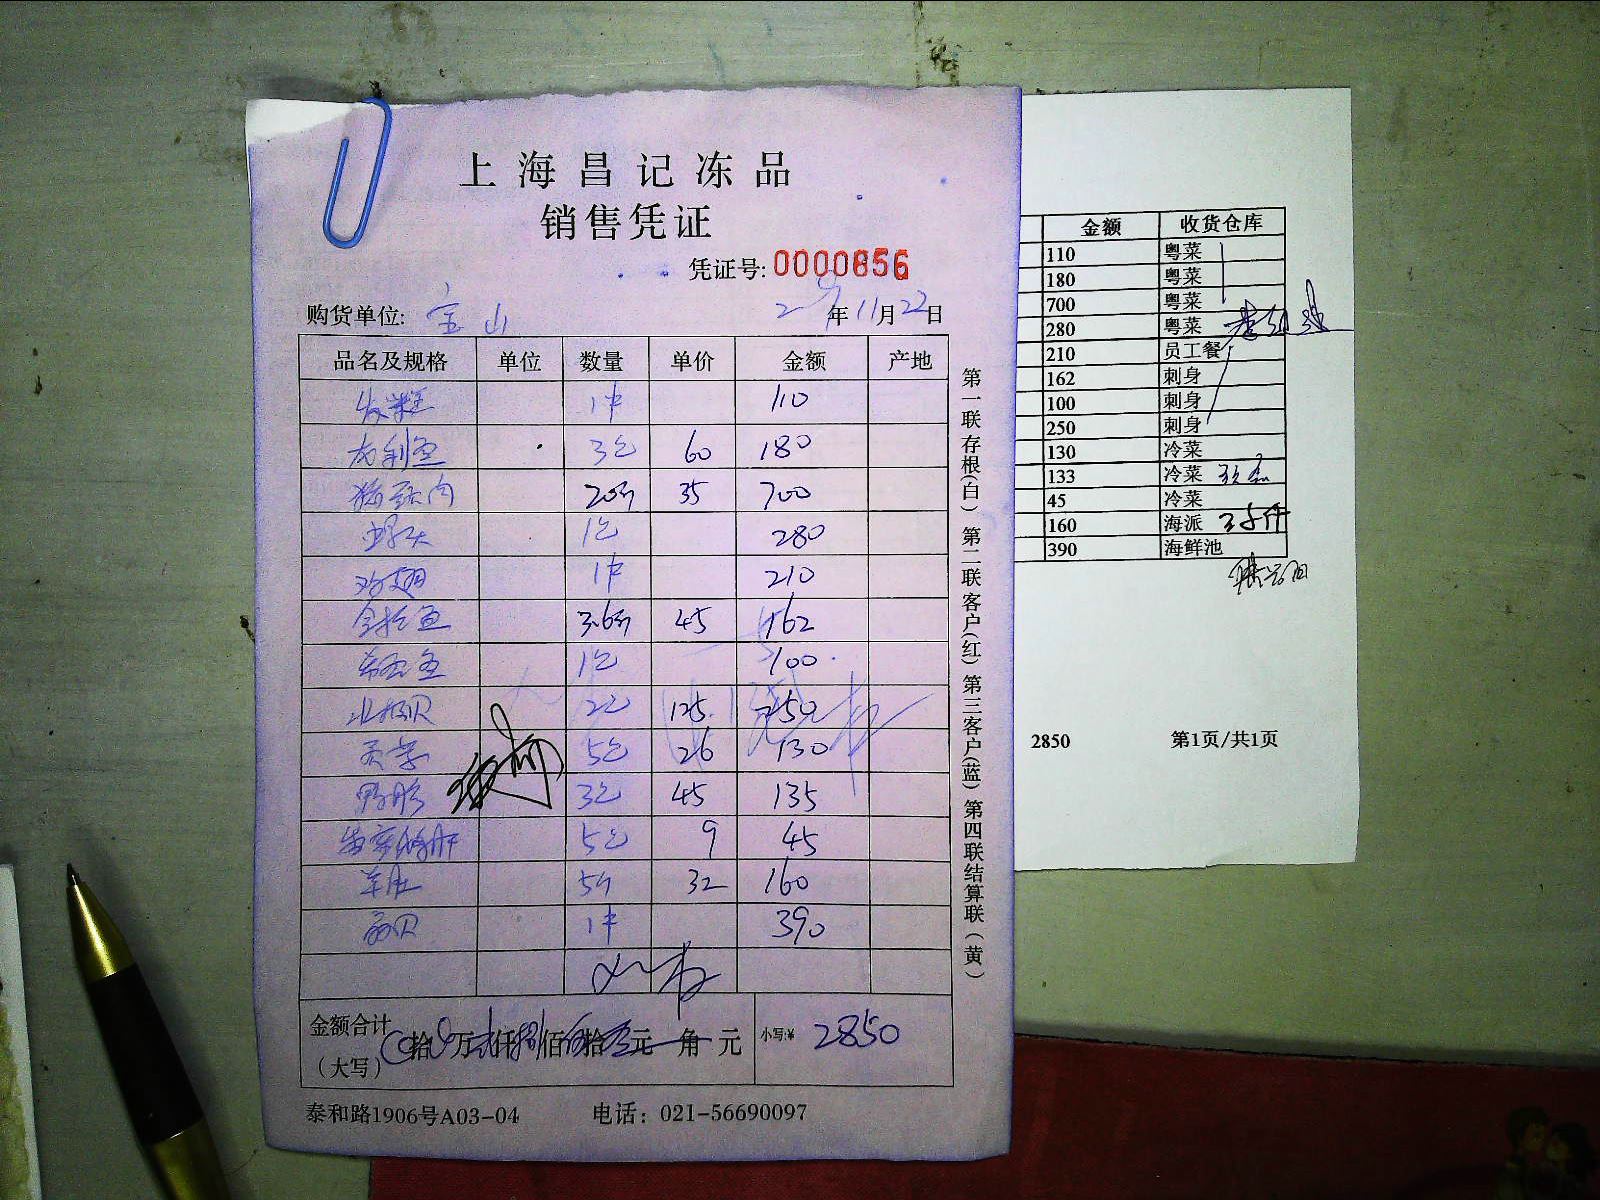 上海昌记冻品
销售凭证
凭证号: 0000856
购货单位: 宝山 年11月22日
品名及规格 单位 数量 单价 金额 产地
1件 110
3包 60 180
猪头肉 20斤 35 700
1包 280
鸡翅 1件 210
金枪鱼 3.6斤 45 162
希灵鱼 1包 100
北极贝 2包 125 250
5包 26 130
鸭胗 3包 45 135
5包 9 45
羊肚 5斤 32 160
扇贝 1件 390
金额合计
(大写) 拾 万贰仟捌佰伍拾 元 角 元 小写:¥ 2850
泰和路1906号A03-04 电话: 021-56690097
第一联存根(白) 第二联客户(红) 第三客户(蓝) 第四联结算联(黄)
金额 收货仓库
110 粤菜
180 粤菜
700 粤菜
280 粤菜
210 员工餐
162 刺身
100 刺身
250 刺身
130 冷菜
133 冷菜
45 冷菜
160 海派
390 海鲜池
2850 第1页/共1页